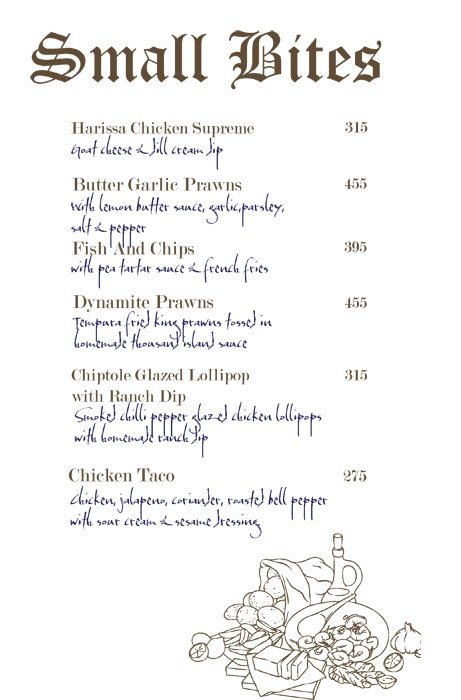 Small Bites
Harissa Chicken Supreme 315
Goat cheese & dill cream dip
Butter Garlic Prawns 455
with lemon butter sauce, garlic,parsley,
salt & pepper
Fish And Chips 395
with pea tartar sauce & french fries
Dynamite Prawns 455
Tempura fried king prawns tossed in
homemade thousand island sauce
Chiptole Glazed Lollipop 315
with Ranch Dip
Smoked chilli pepper glazed chicken lollipops
with homemade ranch dip
Chicken Taco 275
chicken, jalapeno, coriander, roasted bell pepper
with sour cream & sesame dressing